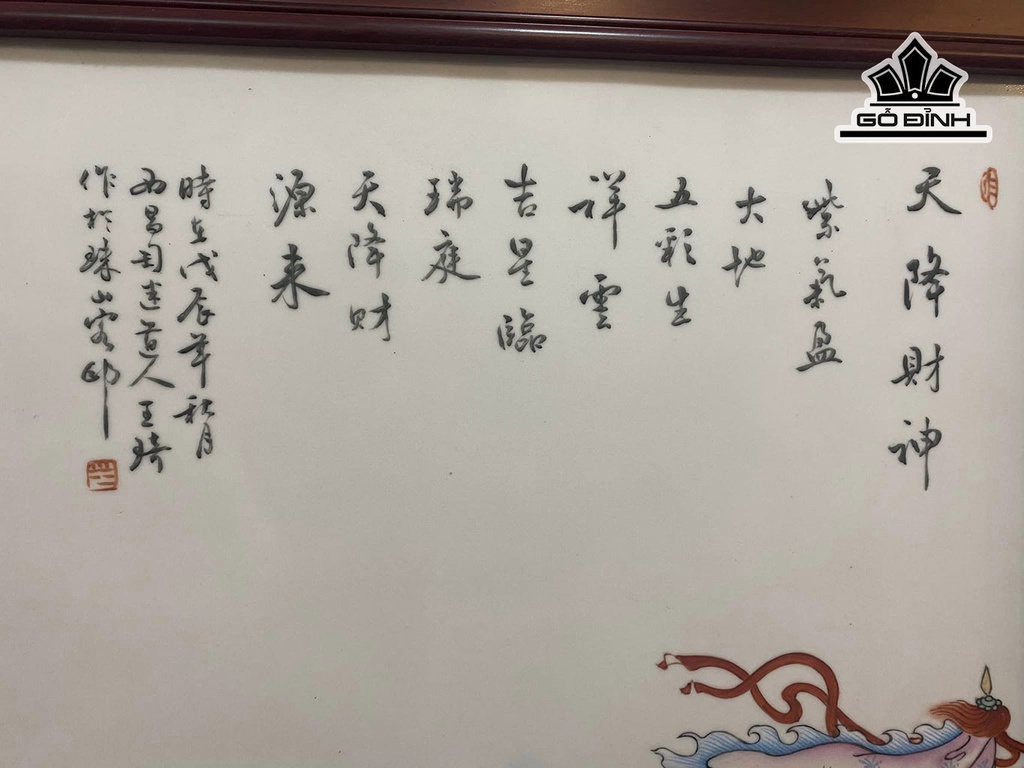 GỖ ĐỈNH
天降財神
紫氣盈
大地
五彩生
祥雲
吉星臨
瑞庭
天降財
源来
時在戊辰年秋月
西昌匋迷道人王琦
作於珠山客邸